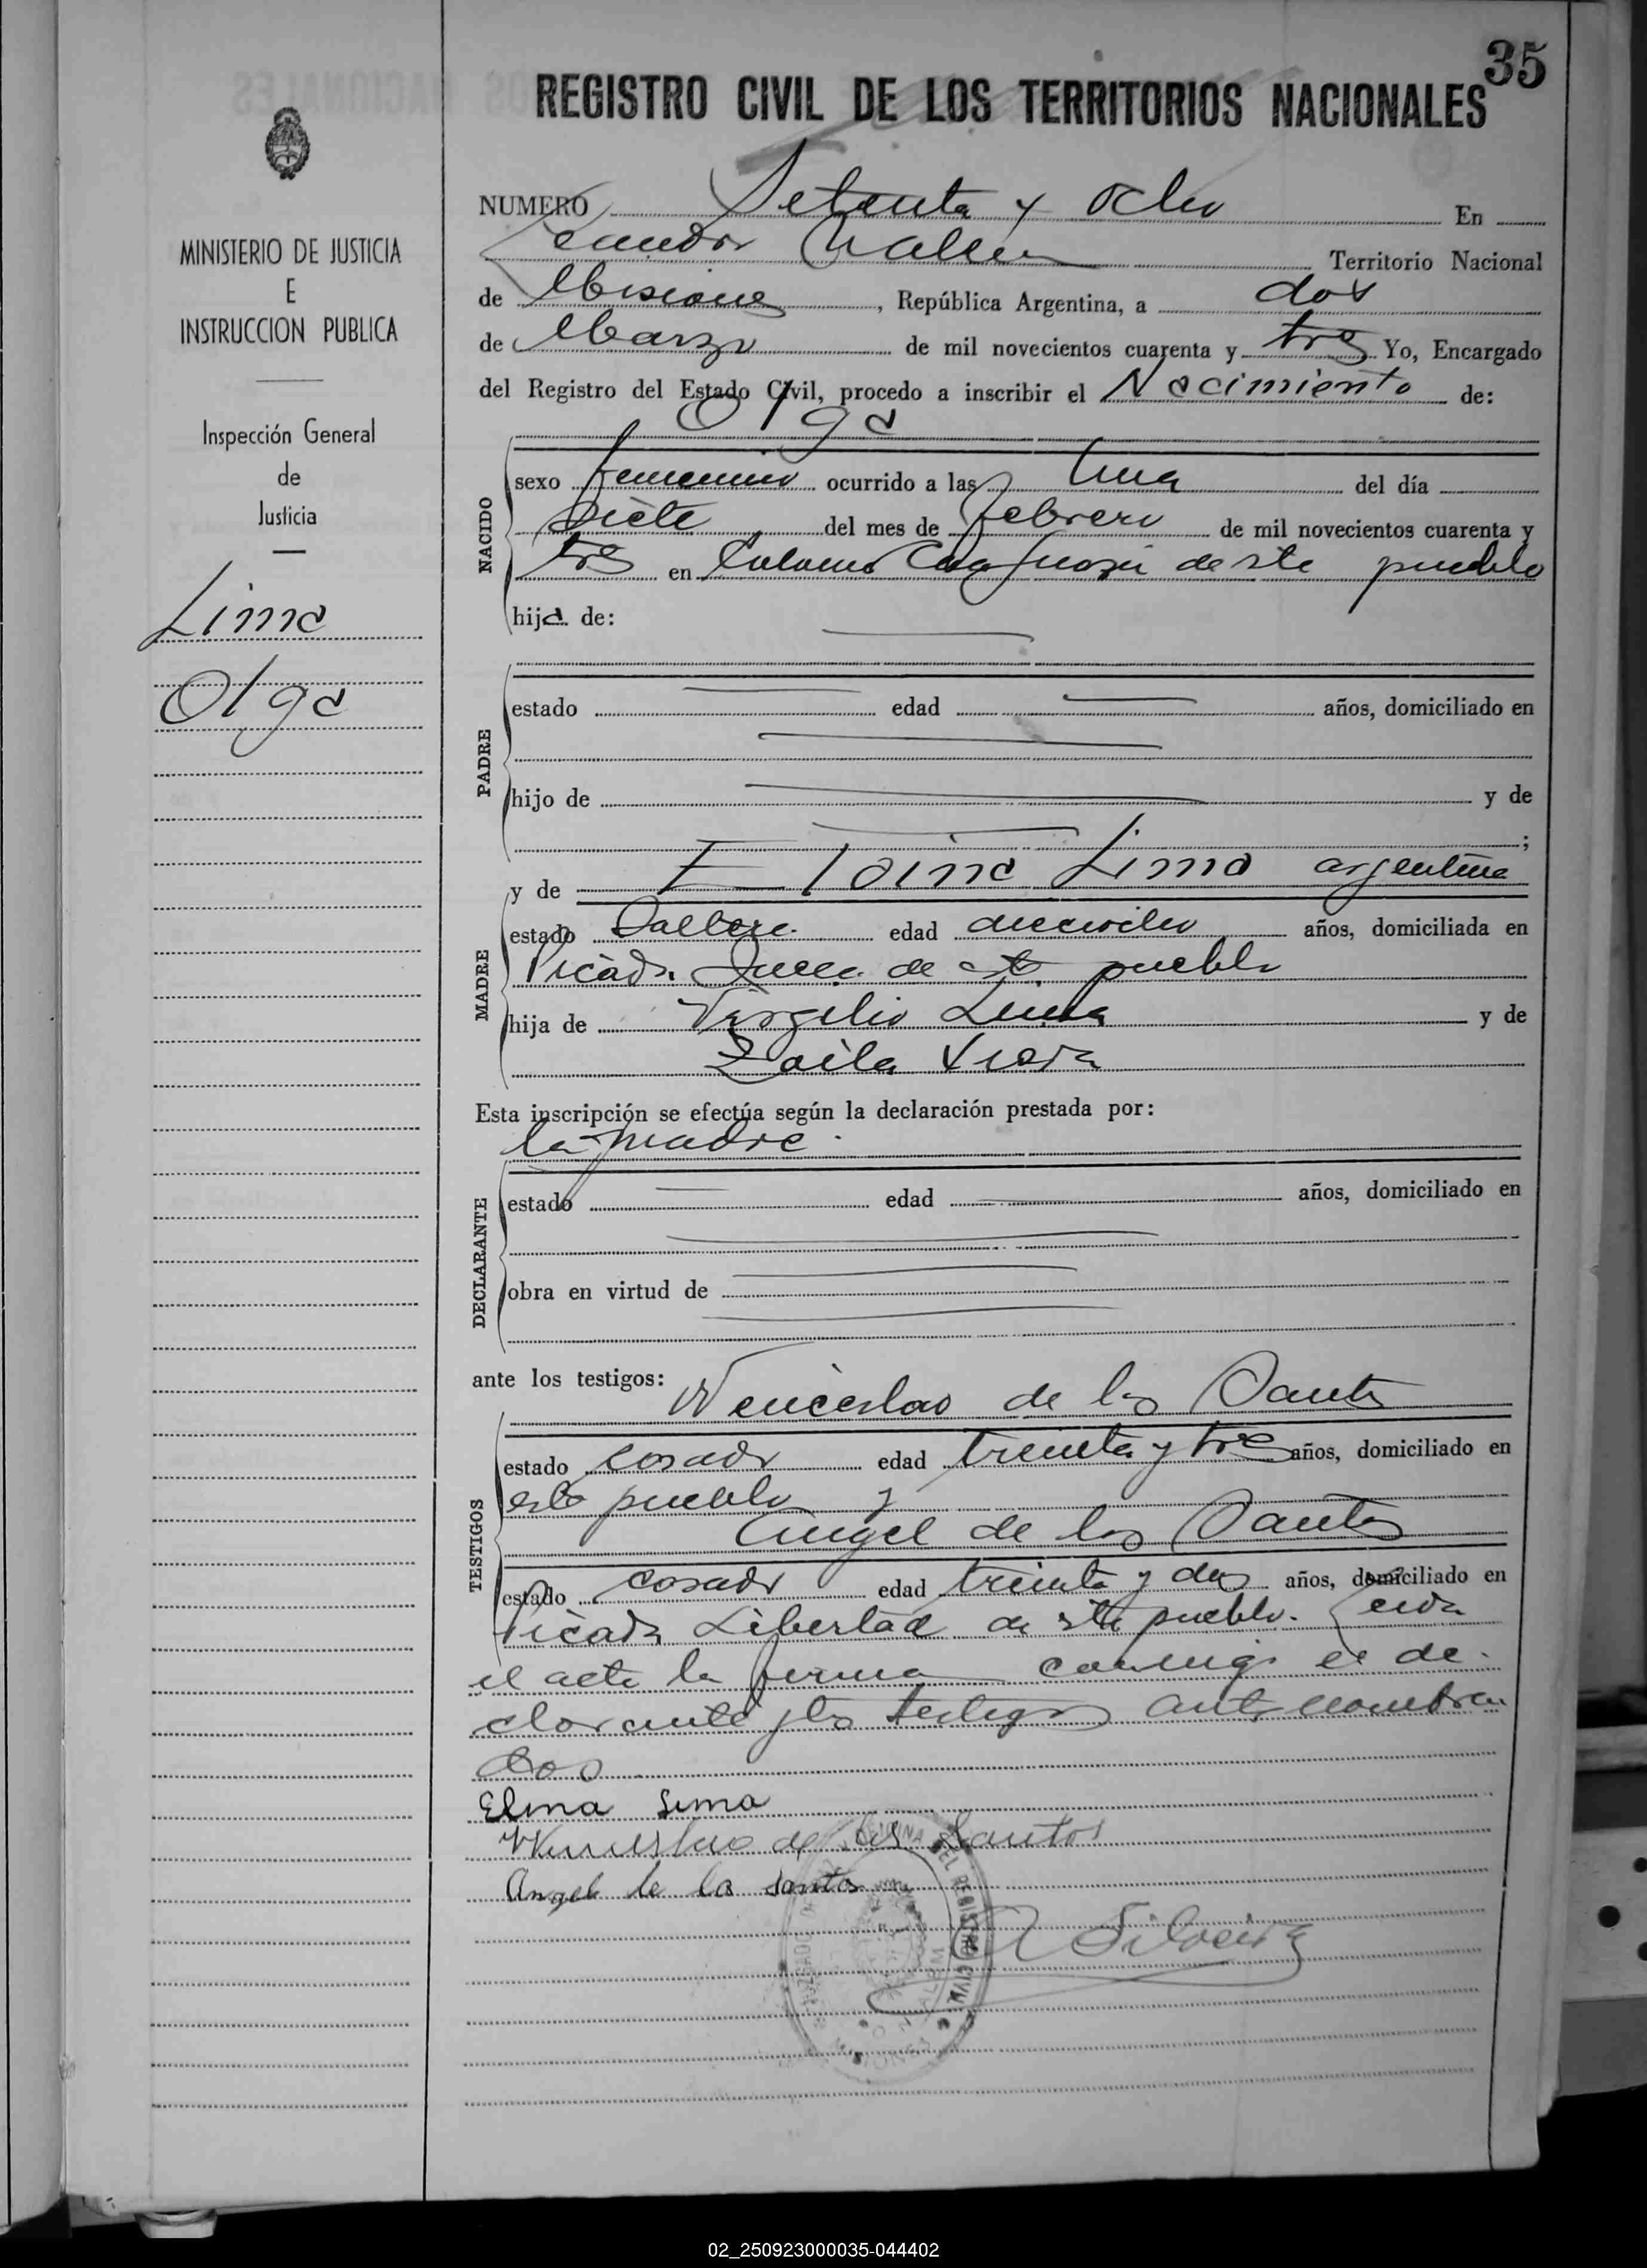 35
REGISTRO CIVIL DE LOS TERRITORIOS NACIONALES
MINISTERIO DE JUSTICIA
E
INSTRUCCION PUBLICA
Inspección General
de
Justicia
Lima
Olga
NUMERO Setenta y ocho En
Territorio Nacional
de Misiones, República Argentina, a dos
de Marzo de mil novecientos cuarenta y tres Yo, Encargado
del Registro del Estado Civil, procedo a inscribir el Nacimiento de:
Olga
NACIDO
sexo femenino ocurrido a las una del día
siete del mes de febrero de mil novecientos cuarenta y
tres en Colonia de este pueblo
hija de:
PADRE
estado edad años, domiciliado en
hijo de y de
;
MADRE
y de Elaina Lima argentina
estado Soltera edad dieciocho años, domiciliada en
Picada de este pueblo
hija de Virgilio Lima y de
Zoila
Esta inscripción se efectúa según la declaración prestada por:
la madre.
DECLARANTE
estado edad años, domiciliado en
obra en virtud de
ante los testigos: Wenceslao de los Santos
TESTIGOS
estado casado edad treinta y tres años, domiciliado en
este pueblo y
Angel de los Santos
estado casado edad treinta y dos años, domiciliado en
Picada Libertad de este pueblo. Leida
el acta la firma conmigo el de-
clarante y los testigos antes nombra
dos
Elina Lima
Wenceslao de los Santos
Angel de los santos
Silveira
REGISTRO CIVIL
MISIONES
02_250923000035-044402